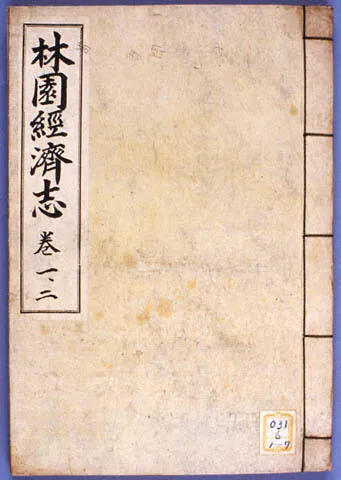 林園經濟志
卷一、二
031
1-7